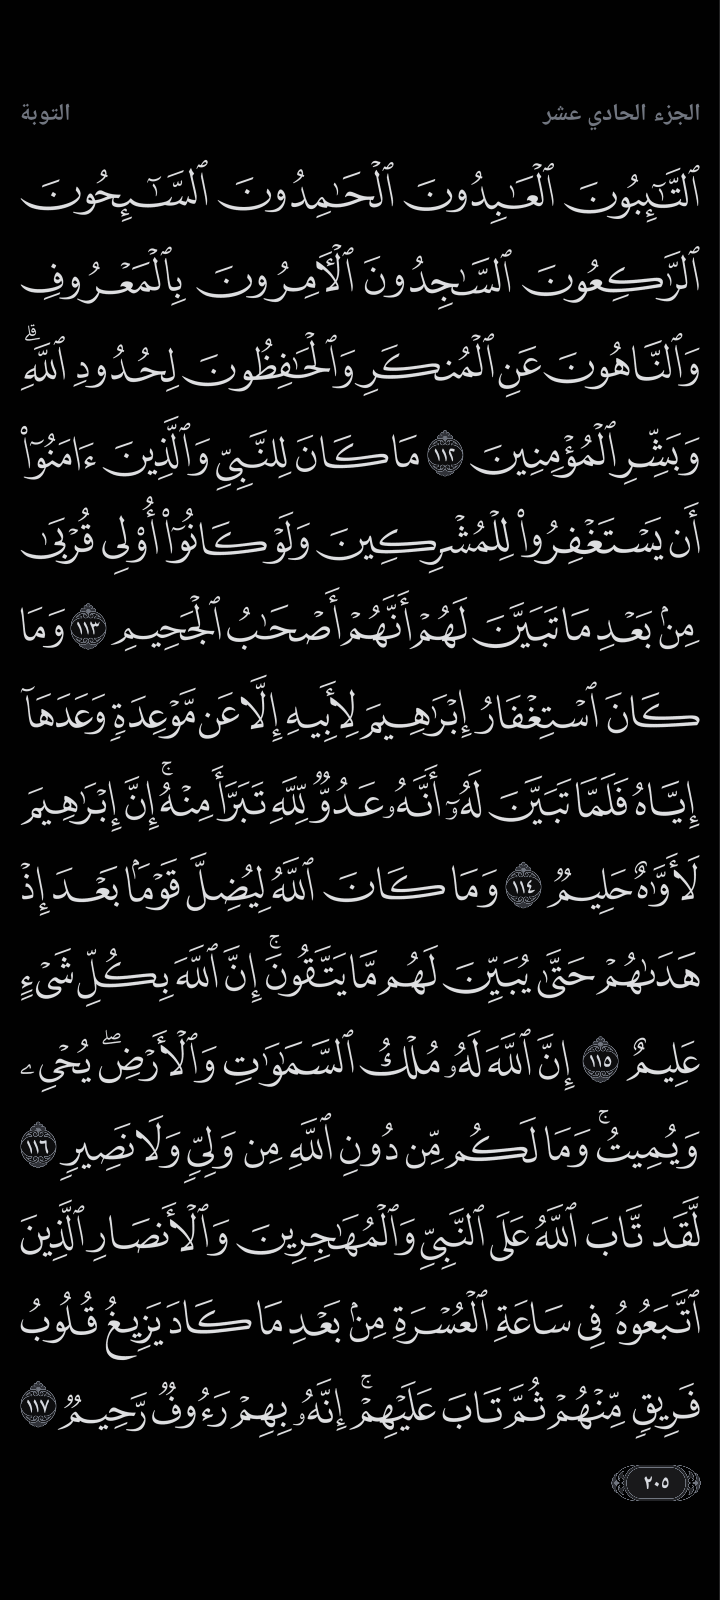 الجزء الحادي عشر
التوبة
ٱلتَّـٰٓئِبُونَ ٱلۡعَـٰبِدُونَ ٱلۡحَـٰمِدُونَ ٱلسَّـٰٓئِحُونَ
ٱلرَّٰكِعُونَ ٱلسَّـٰجِدُونَ ٱلۡأٓمِرُونَ بِٱلۡمَعۡرُوفِ
وَٱلنَّاهُونَ عَنِ ٱلۡمُنكَرِ وَٱلۡحَـٰفِظُونَ لِحُدُودِ ٱللَّهِۗ
وَبَشِّرِ ٱلۡمُؤۡمِنِينَ ١١٢ مَا كَانَ لِلنَّبِيِّ وَٱلَّذِينَ ءَامَنُوٓاْ
أَن يَسۡتَغۡفِرُواْ لِلۡمُشۡرِكِينَ وَلَوۡ كَانُوٓاْ أُوْلِي قُرۡبَىٰ
مِنۢ بَعۡدِ مَا تَبَيَّنَ لَهُمۡ أَنَّهُمۡ أَصۡحَـٰبُ ٱلۡجَحِيمِ ١١٣ وَمَا
كَانَ ٱسۡتِغۡفَارُ إِبۡرَٰهِيمَ لِأَبِيهِ إِلَّا عَن مَّوۡعِدَةٖ وَعَدَهَآ
إِيَّاهُ فَلَمَّا تَبَيَّنَ لَهُۥٓ أَنَّهُۥ عَدُوّٞ لِّلَّهِ تَبَرَّأَ مِنۡهُۚ إِنَّ إِبۡرَٰهِيمَ
لَأَوَّٰهٌ حَلِيمٞ ١١٤ وَمَا كَانَ ٱللَّهُ لِيُضِلَّ قَوۡمَۢا بَعۡدَ إِذۡ
هَدَىٰهُمۡ حَتَّىٰ يُبَيِّنَ لَهُم مَّا يَتَّقُونَۚ إِنَّ ٱللَّهَ بِكُلِّ شَيۡءٍ
عَلِيمٌ ١١٥ إِنَّ ٱللَّهَ لَهُۥ مُلۡكُ ٱلسَّمَـٰوَٰتِ وَٱلۡأَرۡضِۖ يُحۡيِۦ
وَيُمِيتُۚ وَمَا لَكُم مِّن دُونِ ٱللَّهِ مِن وَلِيّٖ وَلَا نَصِيرٖ ١١٦
لَّقَد تَّابَ ٱللَّهُ عَلَى ٱلنَّبِيِّ وَٱلۡمُهَـٰجِرِينَ وَٱلۡأَنصَارِ ٱلَّذِينَ
ٱتَّبَعُوهُ فِي سَاعَةِ ٱلۡعُسۡرَةِ مِنۢ بَعۡدِ مَا كَادَ يَزِيغُ قُلُوبُ
فَرِيقٖ مِّنۡهُمۡ ثُمَّ تَابَ عَلَيۡهِمۡۚ إِنَّهُۥ بِهِمۡ رَءُوفٞ رَّحِيمٞ ١١٧
٢٠٥